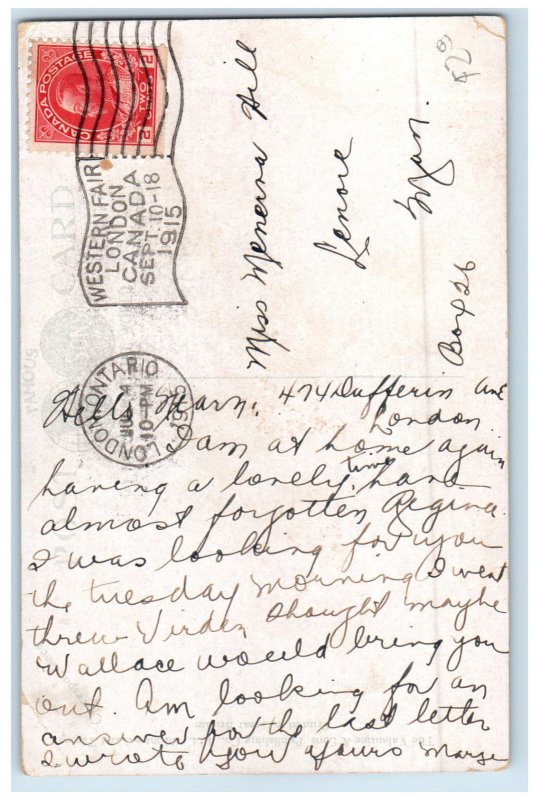 CANADA POSTAGE
2 TWO 2
CENTS
WESTERN FAIR
LONDON
CANADA
SEPT. 10-18
1915
LONDON ONTARIO
10-PM
1915
$2
Miss Menerva Hill
Lenore
Man.
Box 26
CARD
FAMOUS
474 Dufferin Ave
London
I am at home again
having a lovely time, have
almost forgotten Regina.
I was looking for you
the tuesday morning I went
threw Virden thought maybe
Wallace would bring you
out. Am looking for an
answer for the last letter
I wrote you yours Marge
The Valentine & Sons Publishing